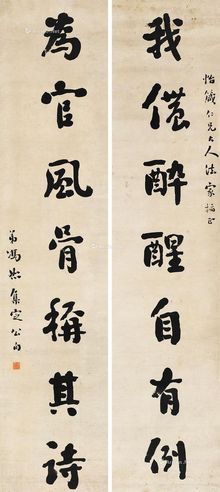 怡箴仁兄大人法家指正
我儂醉醒自有例
為官風骨稱其詩
弟馮煦集定公句